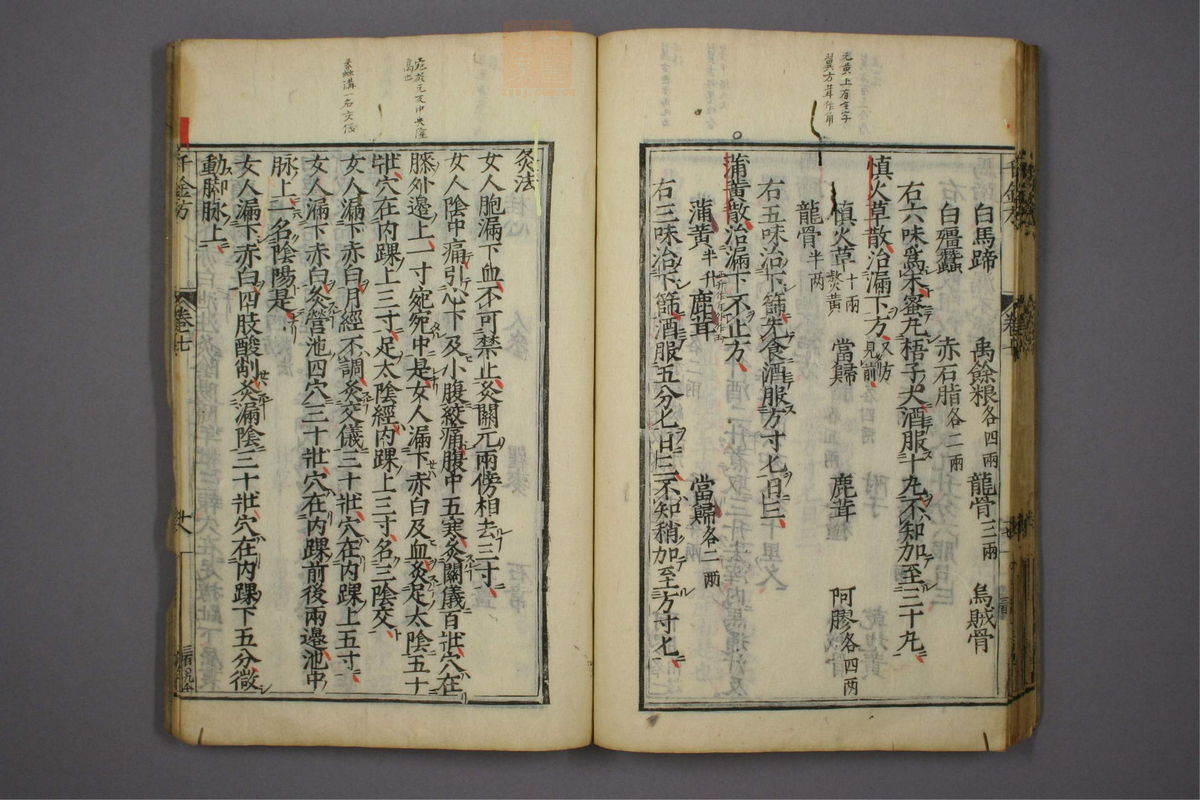 白馬蹄 禹餘粮各四兩 龍骨三兩 烏賊骨
白殭蠶 赤石脂各二兩
右六味爲末蜜丸梧子大酒服十丸不知加至三十丸
慎火草散治漏下方又方見前
慎火草十兩熬黄 當歸 鹿茸 阿膠各四両
龍骨半两
右五味治下篩先食酒服方寸匕日三
蒲黃散治漏下不止方
蒲黃半升 鹿茸 當歸各二兩
右三味治下篩酒服五分匕日三不知稍加至方寸匕
灸法
女人胞漏下血不可禁止灸關元兩傍相去三寸
女人陰中痛引心下及小腹絞痛腹中五寒灸關儀百壯穴在
膝外邊上一寸宛宛中是女人漏下赤白及血灸足太陰五十
壯穴在内踝上三寸足太陰經内踝上三寸名三陰交
女人漏下赤白月經不調灸交儀三十壯穴在内踝上五寸
女人漏下赤白灸營池四穴三十壯穴在内踝前後兩邊池中
脉上一名陰陽是
女人漏下赤白四肢酸削灸漏陰三十壯穴在内踝下五分微
動脚脉上
千金方 卷七